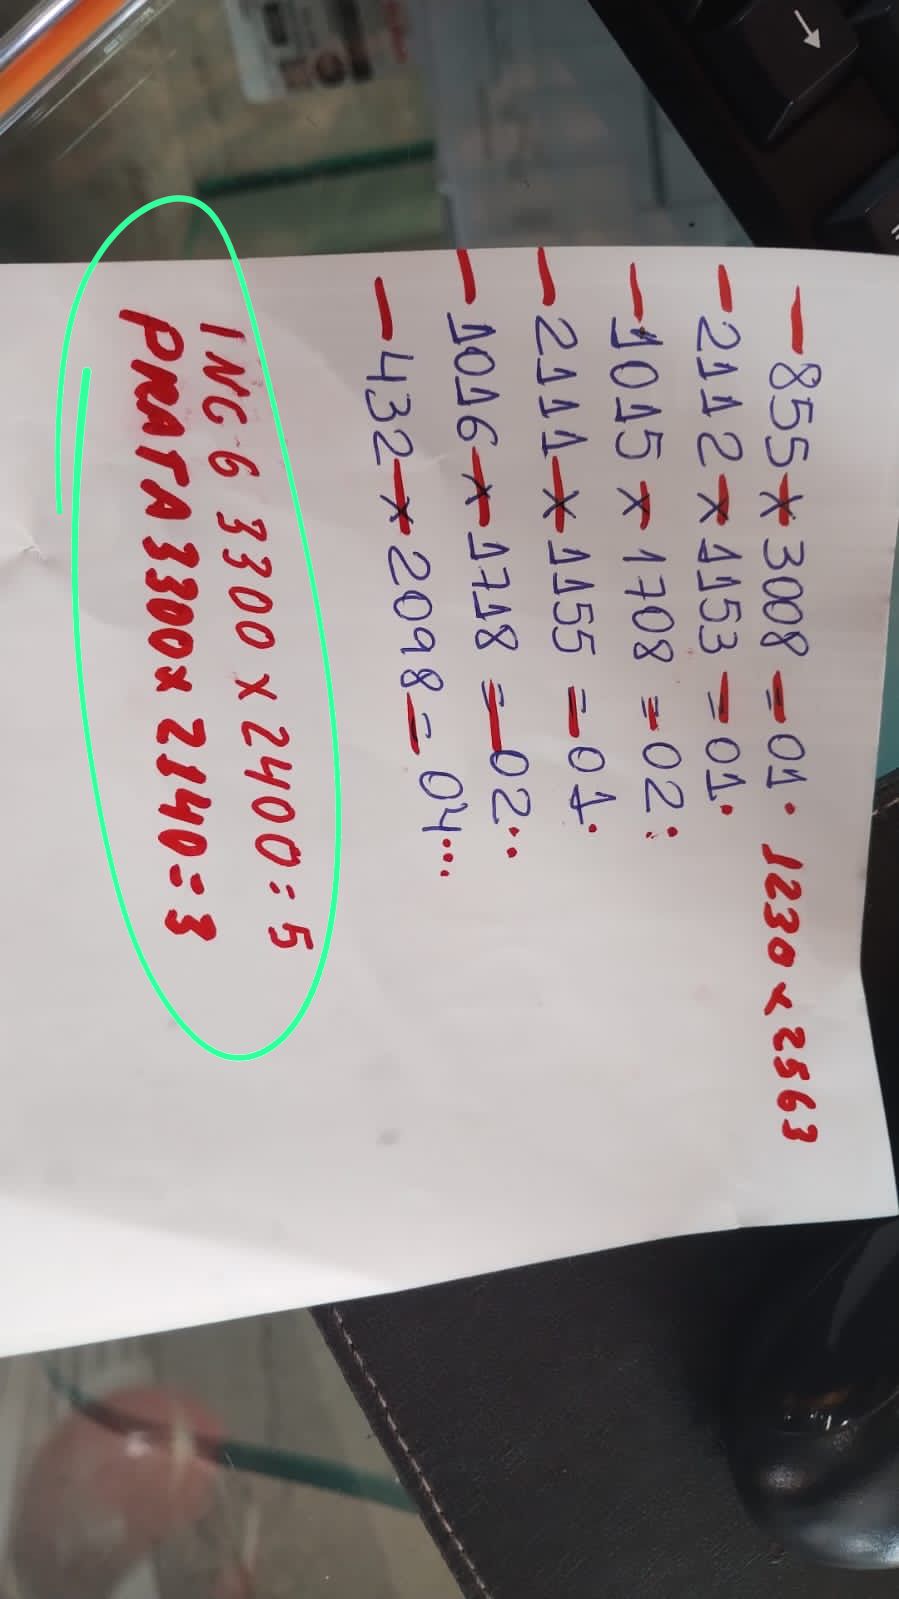 855 x 3008 = 01. 1230 x 2563
2112 x 1153 = 01.
1015 x 1708 = 02:
2111 x 1155 = 01.
1016 x 1718 = 02..
432 x 2098 = 04...
INC-6 3300 x 2400 = 5
PRATA 3300 x 2140 = 3